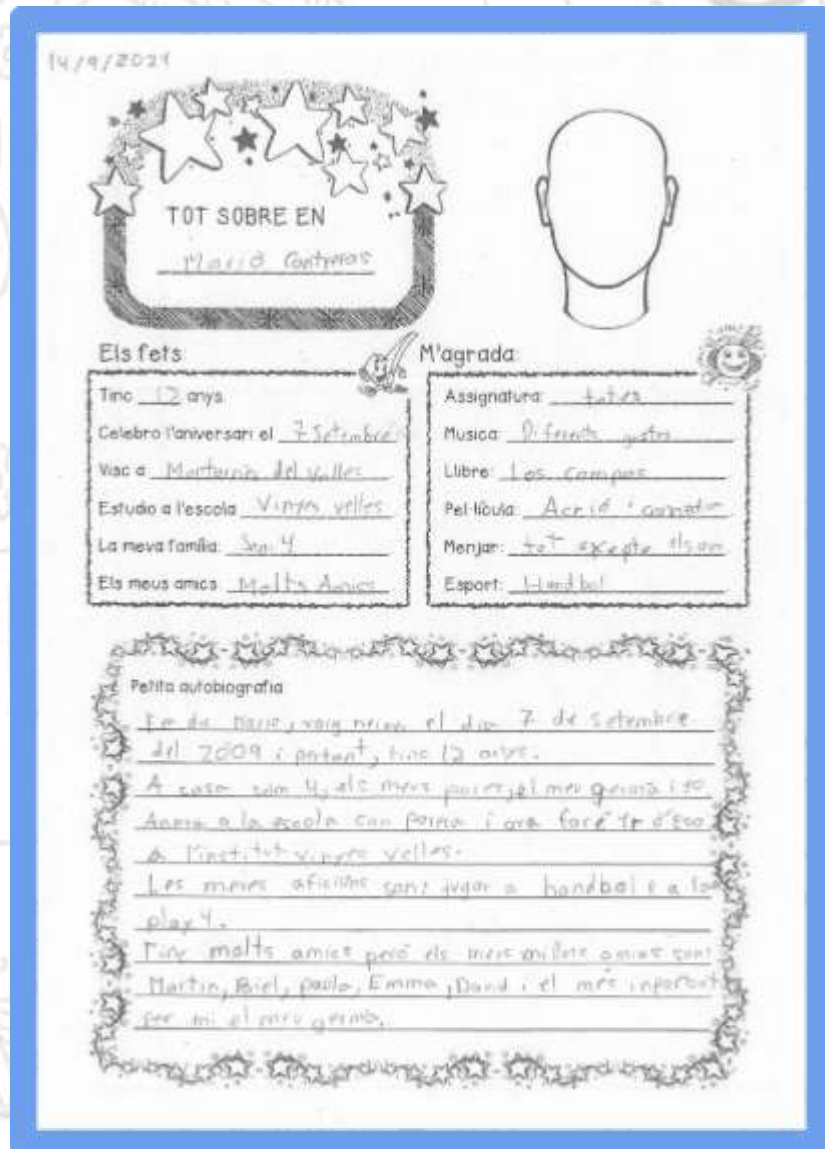 14/9/2021
TOT SOBRE EN
Mario Contreras
Els fets:
Tinc 12 anys.
Celebro l'aniversari el 7 Setembre
Visc a Martorelles del Valles
Estudio a l'escola Vinyes velles
La meva família: Som 4
Els meus amics Molts Amics
M'agrada:
Assignatura: totes
Musica: Diferents gustos
Llibre: Los compas
Pel·lícula: Acció i
Menjar: tot excepte els
Esport: Handbol
Petita autobiografia
Mario, vaig neixer el dia 7 de setembre
del 2009 i portant, tinc 12 anys.
A casa som 4, els meus pares, el meu germà i jo.
a la escola can Parera i ara faré 1r d'eso
a l'institut vinyes velles.
Les meves aficions son: jugar a handbol i a la
play 4.
Tinc molts amics però els meus millors amics son:
Martin, Biel, paola, Emma, David i el més inportant
per mi el meu germà.